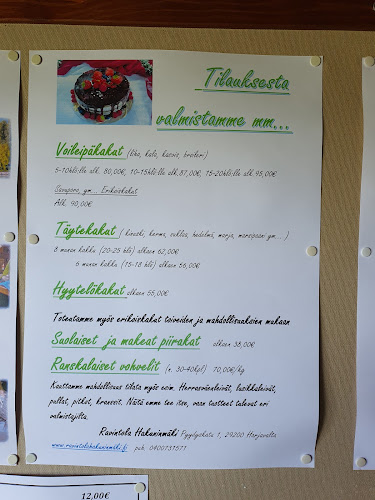 Tilauksesta
valmistamme mm...
Voileipäkakut (liha, kala, kasvis, broileri)
5-10hlö:lle alk. 80,00€, 10-15hlö:lle alk. 87,00€, 15-20hlö:lle alk. 95,00€
Savuporo, ym... Erikoiskakut
Alk. 90,00€
Täytekakut ( kinuski, kerma, suklaa, hedelmä, marja, marsipaani ym... )
8 munan kakku (20-25 hlö) alkaen 62,00€
6 munan kakku (15-18 hlö) alkaen 56,00€
Hyytelökakut alkaen 55,00€
Toteutamme myös erikoiskakut toiveiden ja mahdollisuuksien mukaan
Suolaiset ja makeat piirakat alkaen 38,00€
Ranskalaiset vohvelit (n. 30-40kpl) 70,00€/kg
Kauttamme mahdollisuus tilata myös esim. Herrasväenleivät, lusikkaleivät,
pullat, pitkot, kranssit. Näitä emme tee itse, vaan tuotteet tulevat eri
valmistajilta.
Ravintola Hakuninmäki Pyydyskatu 1, 29200 Harjavalta
www.ravintolahakuninmaki.fi puh. 0400737577
12,00€